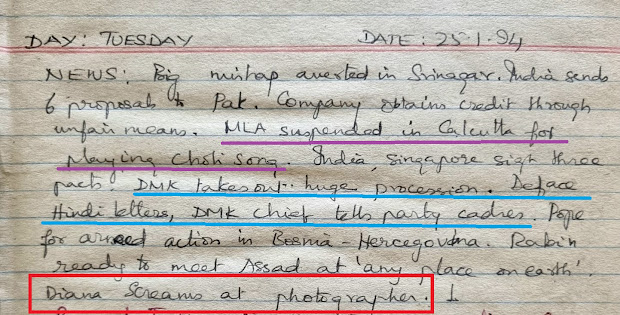 DAY: TUESDAY DATE: 25.1.94
NEWS: Big mishap averted in Srinagar. India sends
6 proposals to Pak. Company obtains credit through
unfair means. MLA suspended in Calcutta for
playing Choli song. India, Singapore sign three
pacts. DMK takes out huge procession. Deface
Hindi letters, DMK chief tells party cadres. Pope
for armed action in Bosnia-Hercegovina. Rabin
ready to meet Assad at 'any place on earth'.
Diana Screams at photographer.